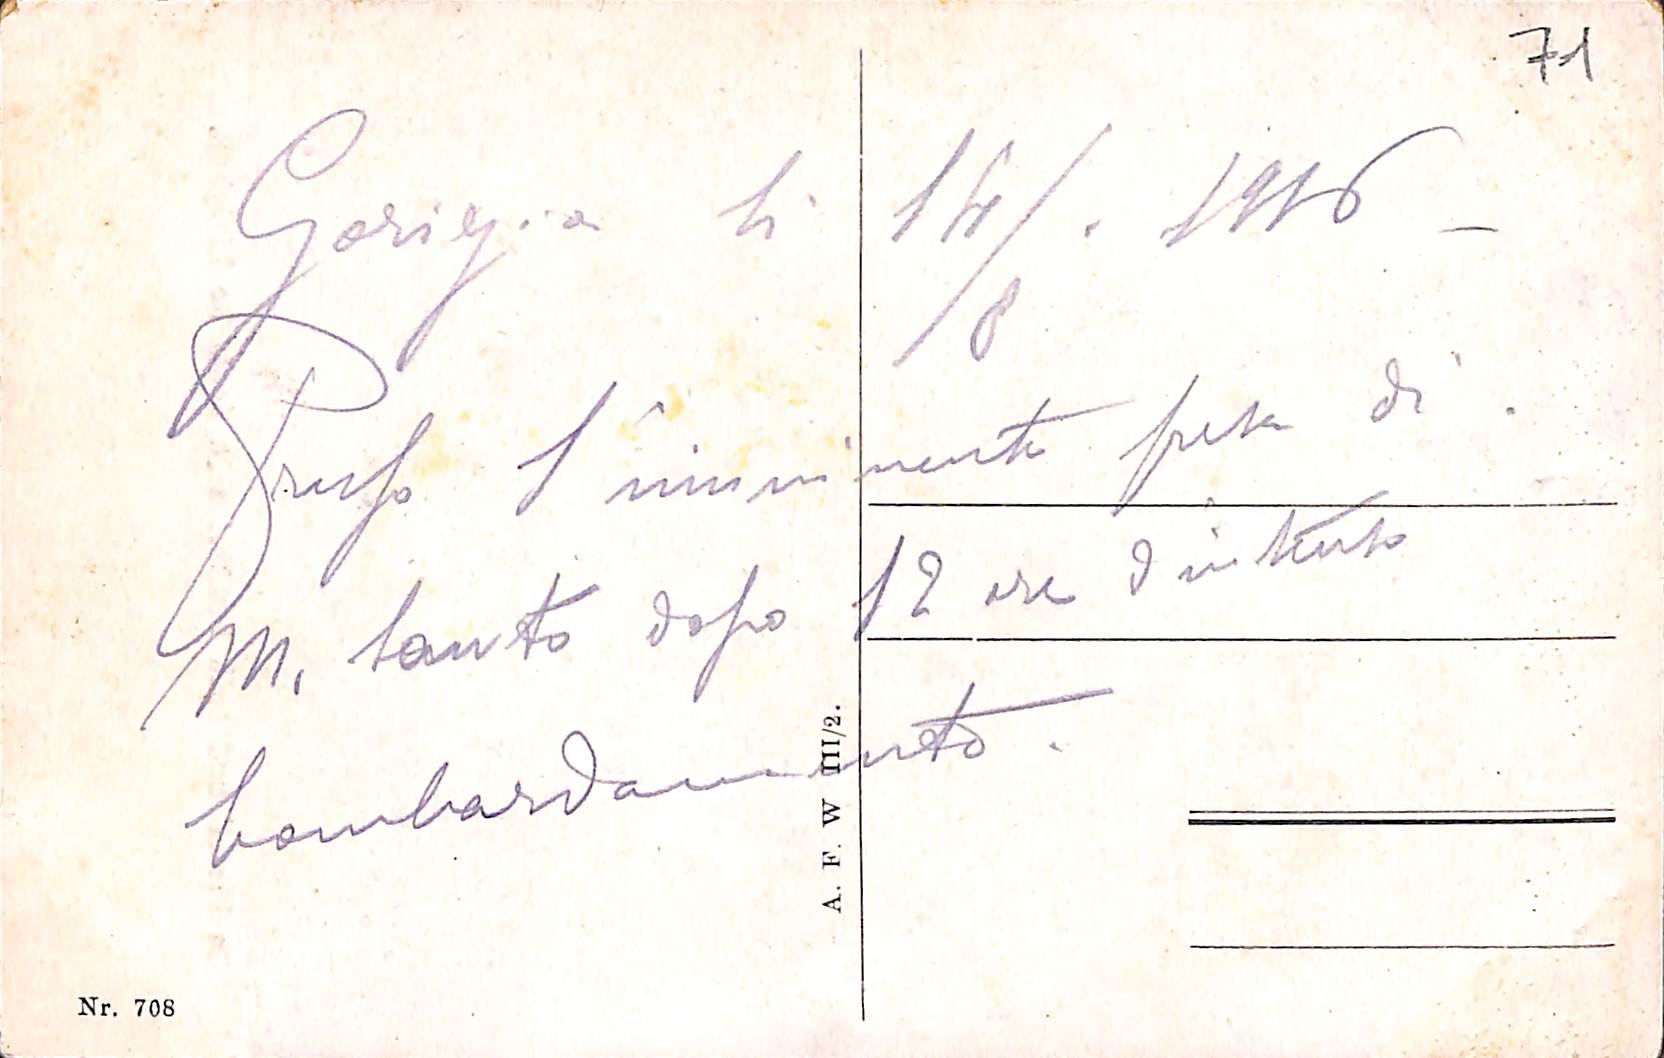 71
Gorizia li 14/8. 1916 –
Presso l'imminente presa di.
M. Santo dopo 12 ore d'intenso
bombardamento.
A. F. W III/2.
Nr. 708